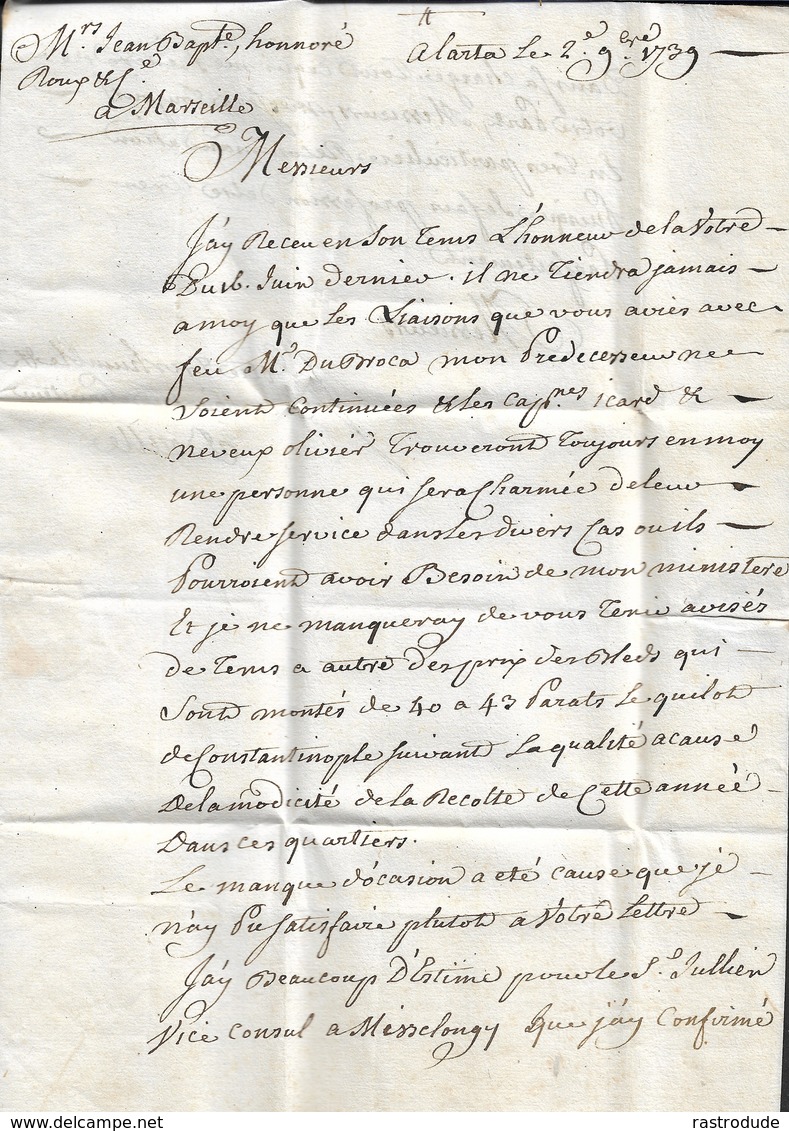 Mrs Jean Bapte, honnoré
Roux & Ce
a Marseille
Alarta Le 2e 9bre 1739
Messieurs
J'ay Receu en Son Tems L'honneur de la Votre
Du 16. Juin dernier. il ne Tiendra jamais
a moy que Les Liaisons que vous aviés avec
feu Mr DuBroca mon Predecesseur ne
Soient Continuées & Les Capnes icard &
neveux olivier Trouveront Toujours en moy
une personne qui Sera Charmée de leur
Rendre Service dans Les divers Cas ou ils
Pourroient avoir Besoin de mon ministere
Et je ne manqueray de vous Tenir avisés
de Tems a autre des prix des Bleds qui
Sont montés de 40 a 43 Parats Le quilot
de Constantinople Suivant La qualité a cause
De la modicité de la Recolte de Cette année
Dans ces quartiers.
Le manque d'ócasion a eté cause que je
n'ay Pu Satisfaire plutot a Votre Lettre
J'ay Beaucoup D'Estime pour le Sr Jullien
Vice Consul a Messelongy que j'ay Confirmé
delcampe.net
rastrodude